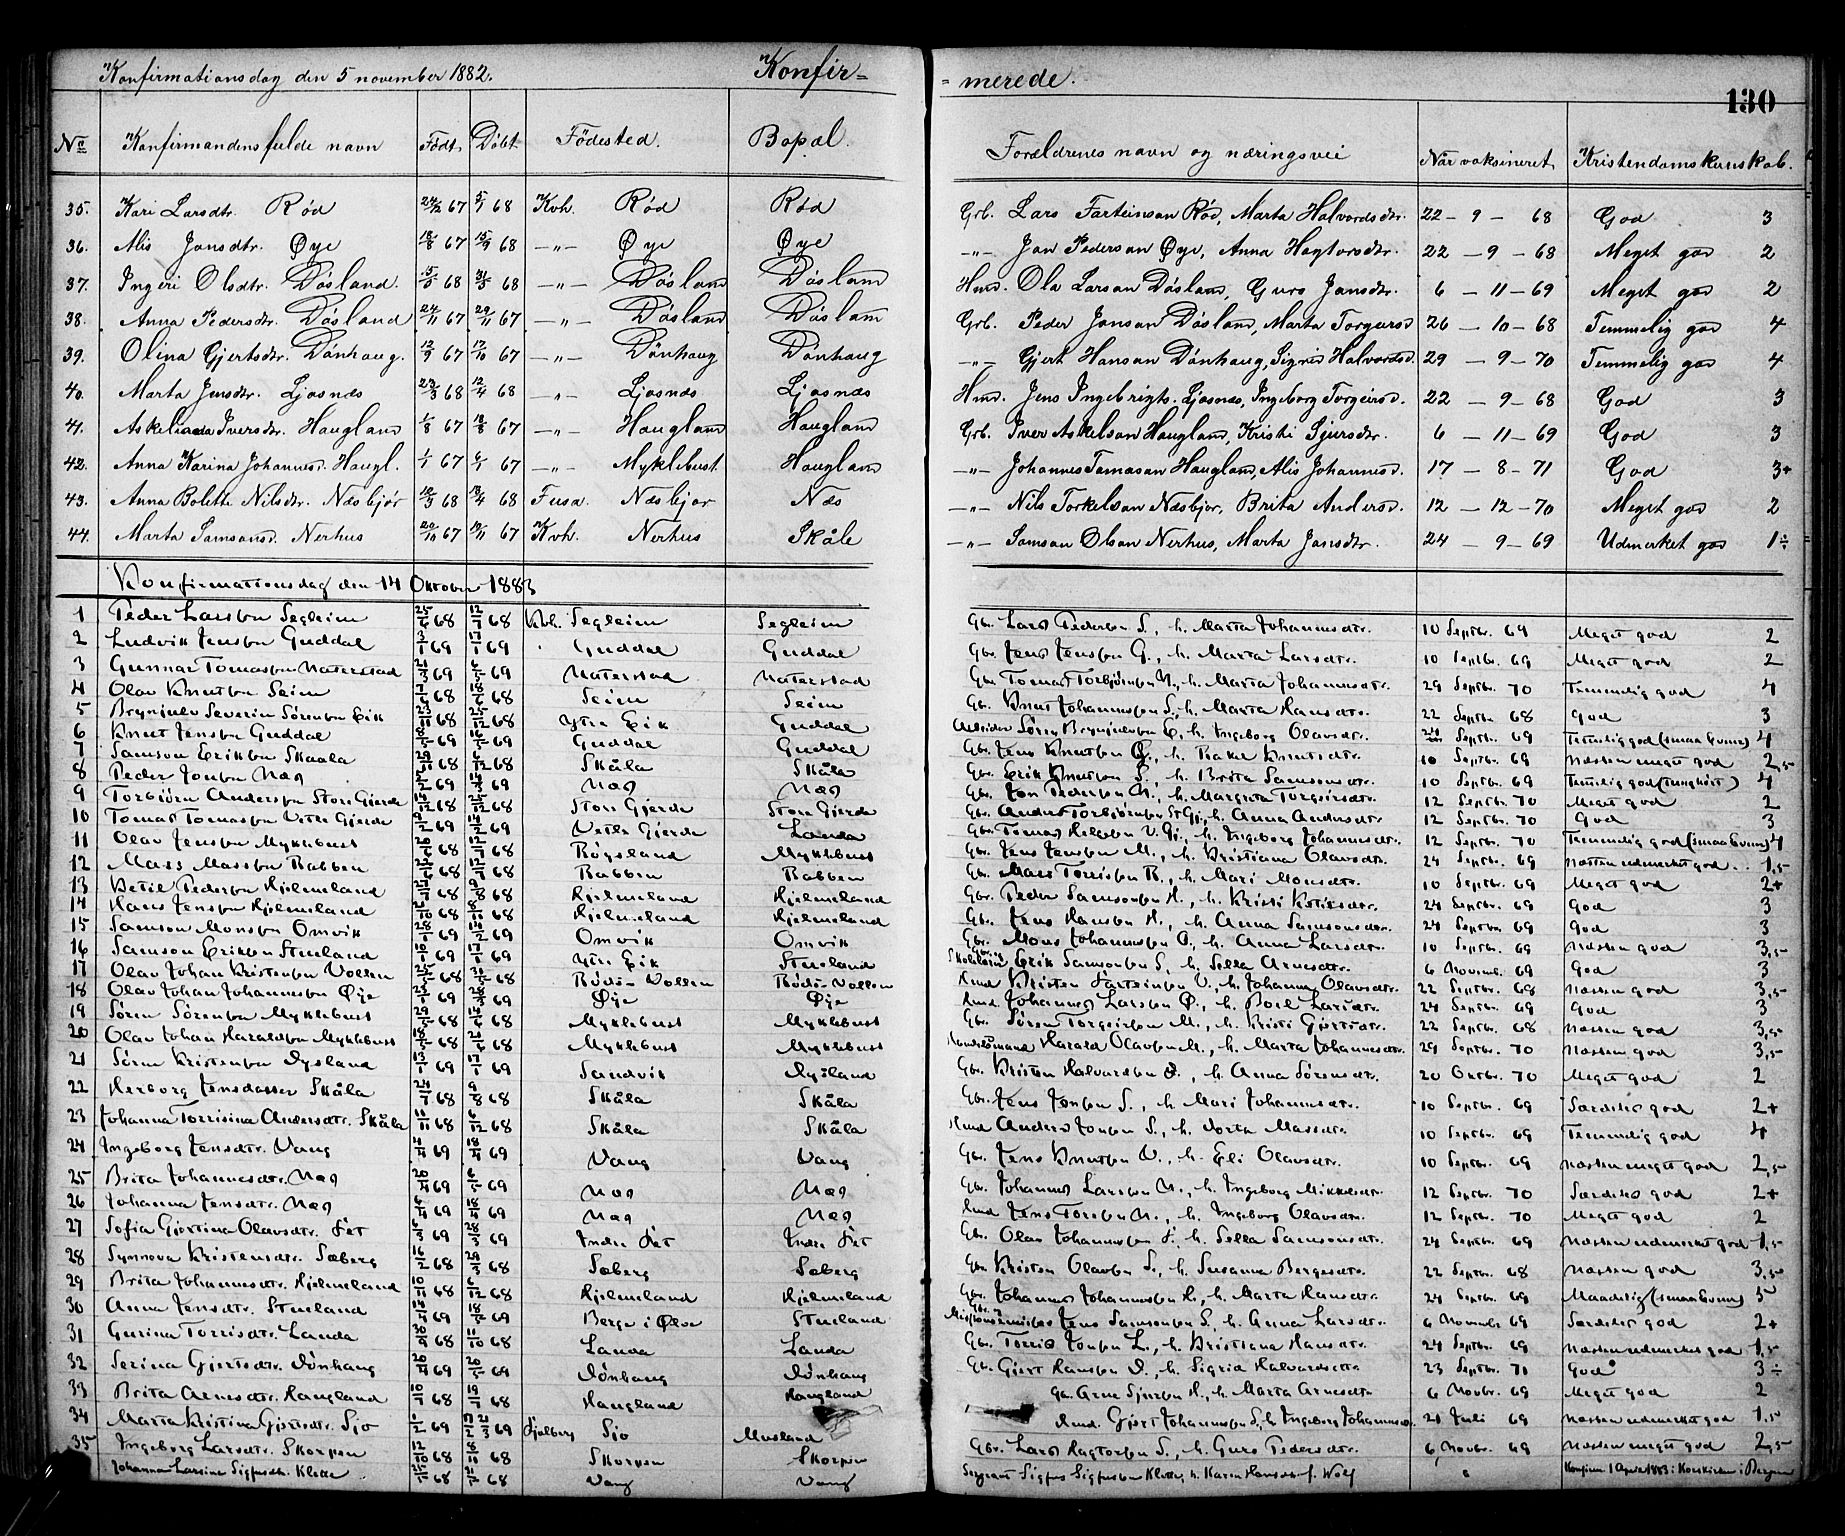 Konfirmationsdag den 5 november 1882. Konfir= =merede. 130
No Konfirmandens fulde navn Født Döbt Födested. Bopæl. Forældrenes navn og næringsvei Når vaksineret Kristendomskunskab.
35. Kari Larsdtr. Röd 24/2 67 5/1 68 Kvh. Röd Röd Grb. Lars Farteinsan Röd, Marta Halvordsdtr. 22 - 9 - 68 God 3
36. Alis Jansdtr. Øye 18/8 67 15/9 68 -"- Øye Øye -"- Jan Pedersan Øye, Anna Hagtorsdtr. 22 - 9 - 68 Meget god 2
37. Ingeri Olsdtr. Døsland. 15/5 68 31/5 68 -"- Døsland Døsland Hmd. Ola Larsan Døsland, Guro Jansdtr. 6 - 11 - 69 Meget god 2
38. Anna Pedersdtr. Døsland 24/11 67 29/11 67 -"- Døsland Døsland Grb. Peder Jansan Døsland, Marta Torgeirsd 26 - 10 - 68 Temmelig god 4
39. Olina Gjertsdtr. Dönhaug. 12/9 67 17/10 67 -"- Dönhaug Dönhaug -"- Gjert Hansan Dönhaug, Sigrid Halvordsd. 29 - 9 - 70 Temmelig god 4
40. Marta Jensdtr. Ljosnæs 23/3 68 12/4 68 -"- Ljosnæs Ljosnæs Hmd. Jens Ingebrigts. Ljosnæs, Ingeborg Torgeirsd. 22 - 9 - 68 God 3
41. Iversdtr. Haugland 1/8 67 18/8 67 -"- Haugland Haugland Grb. Iver Askelsan Haugland, Kristi Sjursdtr. 6 - 11 - 69 God 3
42. Anna Karina Johannesd. Haugl. 1/1 67 6/1 67 -"- Myklebust Haugland -"- Johannes Tomasan Haugland, Alis Johannesd. 17 - 8 - 71 God 3+
43. Anna Bolette Nilsdtr. Næsbjör 12/3 68 13/4 68 Fusa. Næsbjor Næs -"- Nils Torkelsan Næsbjor, Brita Andersd. 12 - 12 - 70 Meget god 2
44. Marta Samsonsd. Nerhus 20/10 67 17/11 67 Kvh. Nerhus Skåle -"- Samsan Olsan Nerhus, Marta Jansdtr. 24 - 9 - 69 Udmerket god 1÷
Konfirmationsdag den 14 Oktober 1883
1 Peder Larssøn Segleim 25/6 68 12/7 68 Kvh. Segleim Segleim Gbr. Lars Pedersøn S., h. Marta Johannesdtr. 10 Septbr. 69 Meget god 2
2 Ludvik Jenssøn Guddal 3/1 69 17/1 69 Guddal Guddal Gbr. Jens Jenssøn G., h. Marta Larsdtr. 10 Septbr. 69 Meget god 2
3 Gunnar Tomassøn Naterstad 21/3 69 6/5 69 Naterstad Naterstad Gbr. Tomas Torbjørnsøn N., h. Marta Johannesdtr. 29 Septbr. 70 Temmelig god 4
4 Olav Knutsøn Seim 68 18/6 68 Seim Seim Gbr. Knut Johannessøn S., h. Marta Hansdtr. 22 Septbr. 68 God 3
5 Brynjulv Severin Sørensøn Eik 68 25/12 68 Ytre Eik Guddal Søren Brynjulvsøn E., h. Ingeborg Olavsdtr. Septbr. 69 Temmelig god (smaa Evner) 4
6 Knut Jenssøn Guddal 69 16/5 69 Guddal Guddal Gbr. Jens Knutsøn G., h. Rakel Knutsdtr. 10 Septbr. 69 Næsten meget god 2,5
7 Samson Eriksøn Skaala 68 6/12 68 Skåla Skåla Gbr. Erik Knutsøn S., h. Brita Samsonsdtr. 10 Septbr. 69 Temmelig god (tunghørt) 4
8 Peder Jonsøn Næs 69 14/3 69 Næs Næs Gbr. Jon Pedersøn N., h. Margreta Torgeirsdtr. 12 Septbr. 70 Meget god 2
9 Torbjørn Anderssøn Store Gjerde 14/12 68 25/12 68 Store Gjerde Store Gjerde Gbr. Anders Torbjørnsøn St Gj., h. Anna Andersdtr. 12 Septbr. 70 God 3
10 Tomas Tomassøn Vetle Gjerde 9/2 69 14/2 69 Vetle Gjerde Landa Gbr. Tomas Helgesøn V. Gj., h. Ingeborg Johannesdtr. 12 Septbr. 70 Temmelig god (smaa Evner) 4
11 Olav Jenssøn Myklebust 68 12/7 68 Røysland Myklebust Gbr. Jens Jenssøn M., h. Kristiana Olavsdtr. 24 Septbr. 69 Næsten udmerket god.. 1,5
12 Mass Massøn Rabben 68 12/7 68 Rabben Rabben Gbr. Mass Torrissøn R., h. Mari Monsdtr. 10 Septbr. 69 Meget god 2+
13 Ketil Pedersøn Hjelmeland 27/7 68 9/8 68 Hjelmeland Hjelmeland Gbr. Peder Samsonsøn H., h. Kristi Ketilsdtr. 24 Septbr. 69 God 3
14 Hans Jenssøn Hjelmeland 68 68 Hjelmeland Hjelmeland Gbr. Jens Hanssøn H., h. Anna Samsonsdtr. 24 Septbr. 69 God 3
15 Samson Monssøn Omvik 28/1 69 14/2 69 Omvik Omvik Gbr. Mons Johannessøn O., h. Anna Larsdtr. 10 Septbr. 69 Næsten god 3,5
16 Samson Eriksøn Stueland 10/1 69 17/1 69 Ytre Eik Stueland Erik Samsonsøn S., h. Sella Arnesdtr. 6 Novemb. 69 God 3
17 Olav Johan Kristensøn Vollen 68 68 Bödö-Vollen Bödö-Vollen Hmd Kristen Farteinsøn V., h. Johanna Olavsdtr. 22 Septbr. 68 Næsten god 3,5
18 Olav Johan Johannessøn Øye 69 28/3 69 Øye Øye Hmd Johannes Larssøn Ø., h. Boel Larsdtr. 24 Septbr. 69 God 3
19 Sören Sörensøn Myklebust 29/5 68 14/6 68 Myklebust Myklebust Gbr. Søren Torgeirsøn M., h. Kristi Gjertsdtr. 22 Septbr. 68 Næsten god 3,5
20 Olav Johan Haraldsøn Myklebust 18/5 68 21/6 68 Myklebust Myklebust Harald Olavsøn M., h. Marta Johannesdtr. 29 Septbr. 70 Næsten god 3,5
21 Sören Kristensøn Dysland 13/1 69 17/1 69 Sandvik Dysland Gbr. Kristen Halvardsøn D., h. Anna Sörensdtr. 20 Oktbr. 70 Meget god 2
22 Herborg Jensdatter Skåla 24/7 68 9/8 68 Skåla Skåla Gbr. Jens Jonsøn S., h. Mari Johannesdtr. 10 Septbr. 69 Særdeles god 2+
23 Johanna Torrisina Andersdtr. Skåla 11/11 68 6/12 68 Skåla Skåla Hmd Anders Jonsøn S., h. Dorta Massdtr. 10 Septbr. 69 Temmelig god 4
24 Ingeborg Jensdtr. Vang 4/4 69 18/4 69 Vang Vang Gbr. Jens Knutsøn V., h. Eli Olavsdtr. 10 Septbr. 69 Næsten meget god 2,5
25 Brita Johannesdtr. Næs 20/4 69 6/5 69 Næs Næs Gbr. Johannes Larssøn N., h. Ingeborg Mikkelsdtr. 12 Septbr. 70 Særdeles god 2+
26 Johanna Jensdtr. Næs 6/4 69 18/4 69 Næs Næs Hmd Jens Toresøn N., h. Ingeborg Olavsdtr. 12 Septbr. 70 Meget god 2
27 Sofia Gjertina Olavsdtr. Fet 6/3 69 28/3 69 Indre Fet Indre Fet Gbr. Olav Johannessøn F., h. Sella Samsonsdtr. 24 Septbr. 69 Næsten udmerket god 1,5
28 Synnova Kristensdtr. Sæberg 16/2 68 68 Sæberg Sæberg Gbr. Kristen Olavsøn S., h. Susanna Bergesdtr. 22 Septbr. 68 Næsten god 3,5
29 Brita Johannesdtr. Hjelmeland 10/11 68 6/12 68 Hjelmeland Hjelmeland Gbr. Johannes Johannessøn H., h. Marta Hansdtr. 24 Septbr. 69 Maadelig (smaa Evner) 5
30 Anna Jensdtr. Stueland 14/4 69 18/4 69 Berge i Ølve Stueland Jens Samsonsøn S., h. Anna Larsdtr. 6 Novembr 69 Særdeles god 2+
31 Gurina Torrisdtr. Landa 30/9 68 11/10 68 Landa Landa Gbr. Torris Jonsøn L., h. Kristiana Hansdtr. 24 Septbr. 69 Næsten udmerket god 1,5
32 Serina Gjertsdtr. Dönhaug 20/4 69 20/5 69 Dönhaug Dönhaug Gbr. Gjert Hanssøn D., h. Sigrid Halvardsdtr 23 Septbr. 71 God 3÷
33 Brita Arnesdtr. Haugland 10/7 68 19/7 68 Haugland Haugland Gbr. Arne Sjursøn H., h. Marta Arnesdtr. 6 Novbr. 69 Meget god 2
34 Marta Kristina Gjertsdtr. Sjo 1/2 69 21/3 69 Fjelberg Sjo Musland Hmd. Gjert Johannessøn S., h. Ingeborg Johannesdtr. 21 Juli 69 Næsten udmerket god 1,5
35 Ingeborg Larsdtr. Skorpen 12/10 68 18/10 68 Skorpen Skorpen Gbr. Lars Hagtorsøn S., h. Guro Pedersdtr. 6 Novbr. 69 Næsten meget god 2,5
Johanna Larsine Sigfusdtr. Klette 68 68 Vang Vang Sergeant Sigfus Sigfussøn Klette, h. Karen Hansdtr f. Wolf Konfirm. 1 April 1883 i Korskirken i Bergen